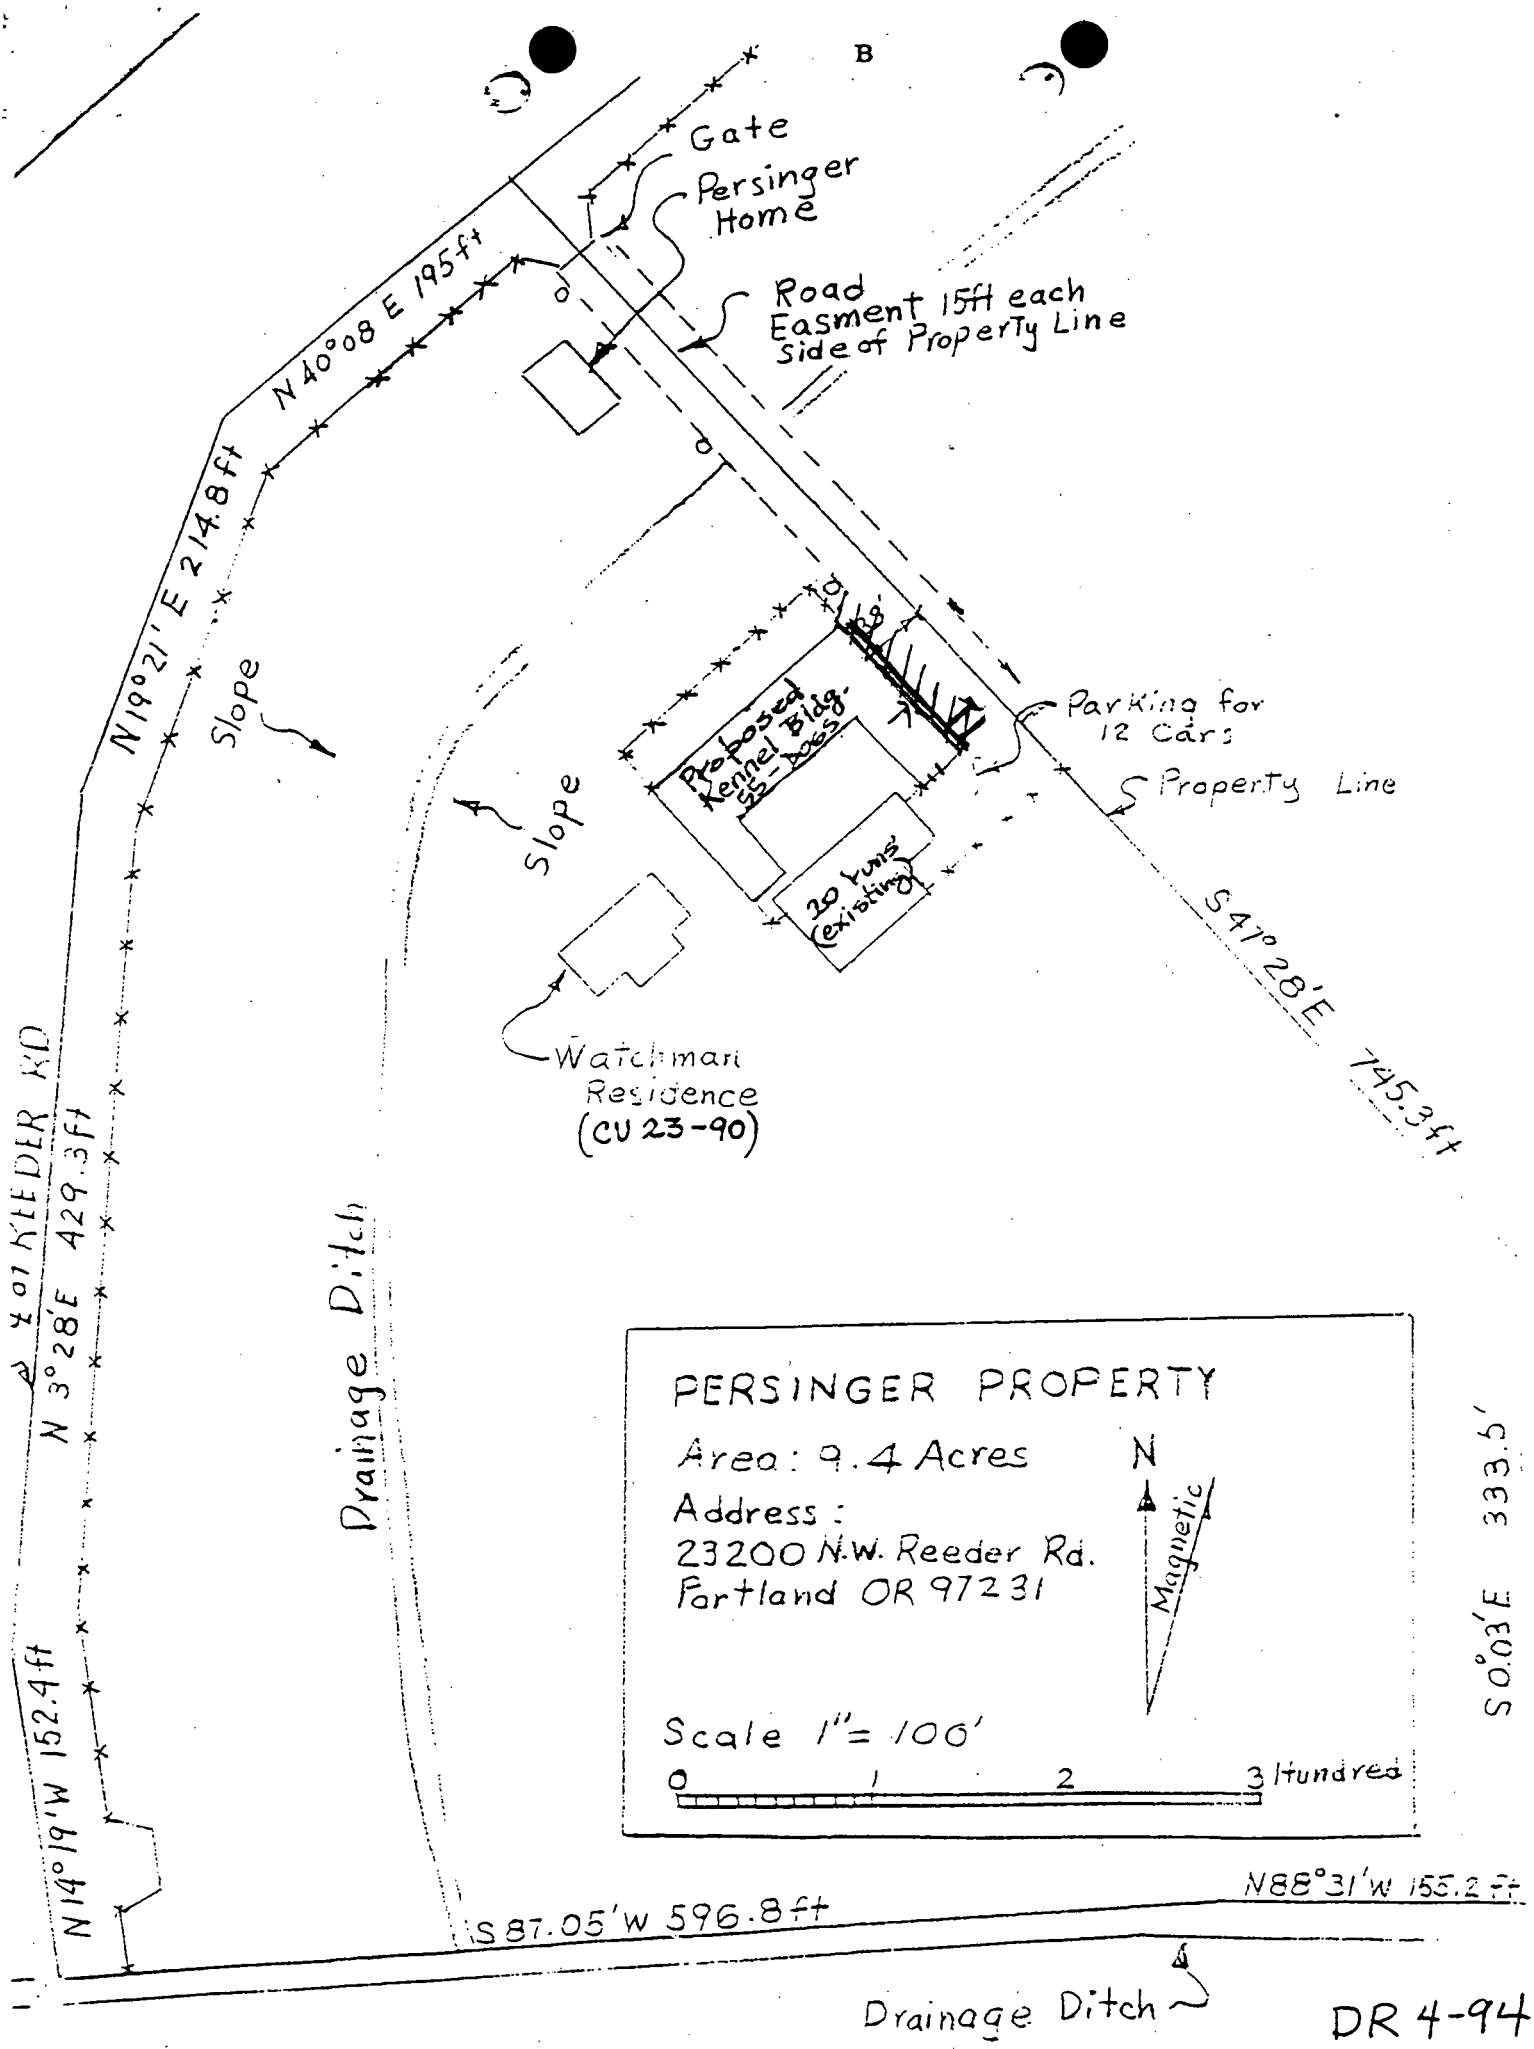 B
Gate
Persinger
Home
Road
Easment 15ft each
side of Property Line
N 40°08 E 195ft
N 19°21' E 214.8ft
Slope
Slope
38'
Proposed
Kennel Bldg.
55-DOGS
20 runs
(existing)
Parking for
12 Cars
Property Line
S 47° 28' E 745.3ft
Watchman
Residence
(CU 23-90)
RD
N 3° 28' E 429.3ft
Drainage Ditch
N 14° 19' W 152.4ft
PERSINGER PROPERTY
Area: 9.4 Acres
Address:
23200 N.W. Reeder Rd.
Portland OR 97231
N
Magnetic
Scale 1"= 100'
0 1 2 3 Hundred
S 0°03' E 333.5'
S 87.05' W 596.8ft
N88°31'W 155.2 ft
Drainage Ditch
DR 4-94